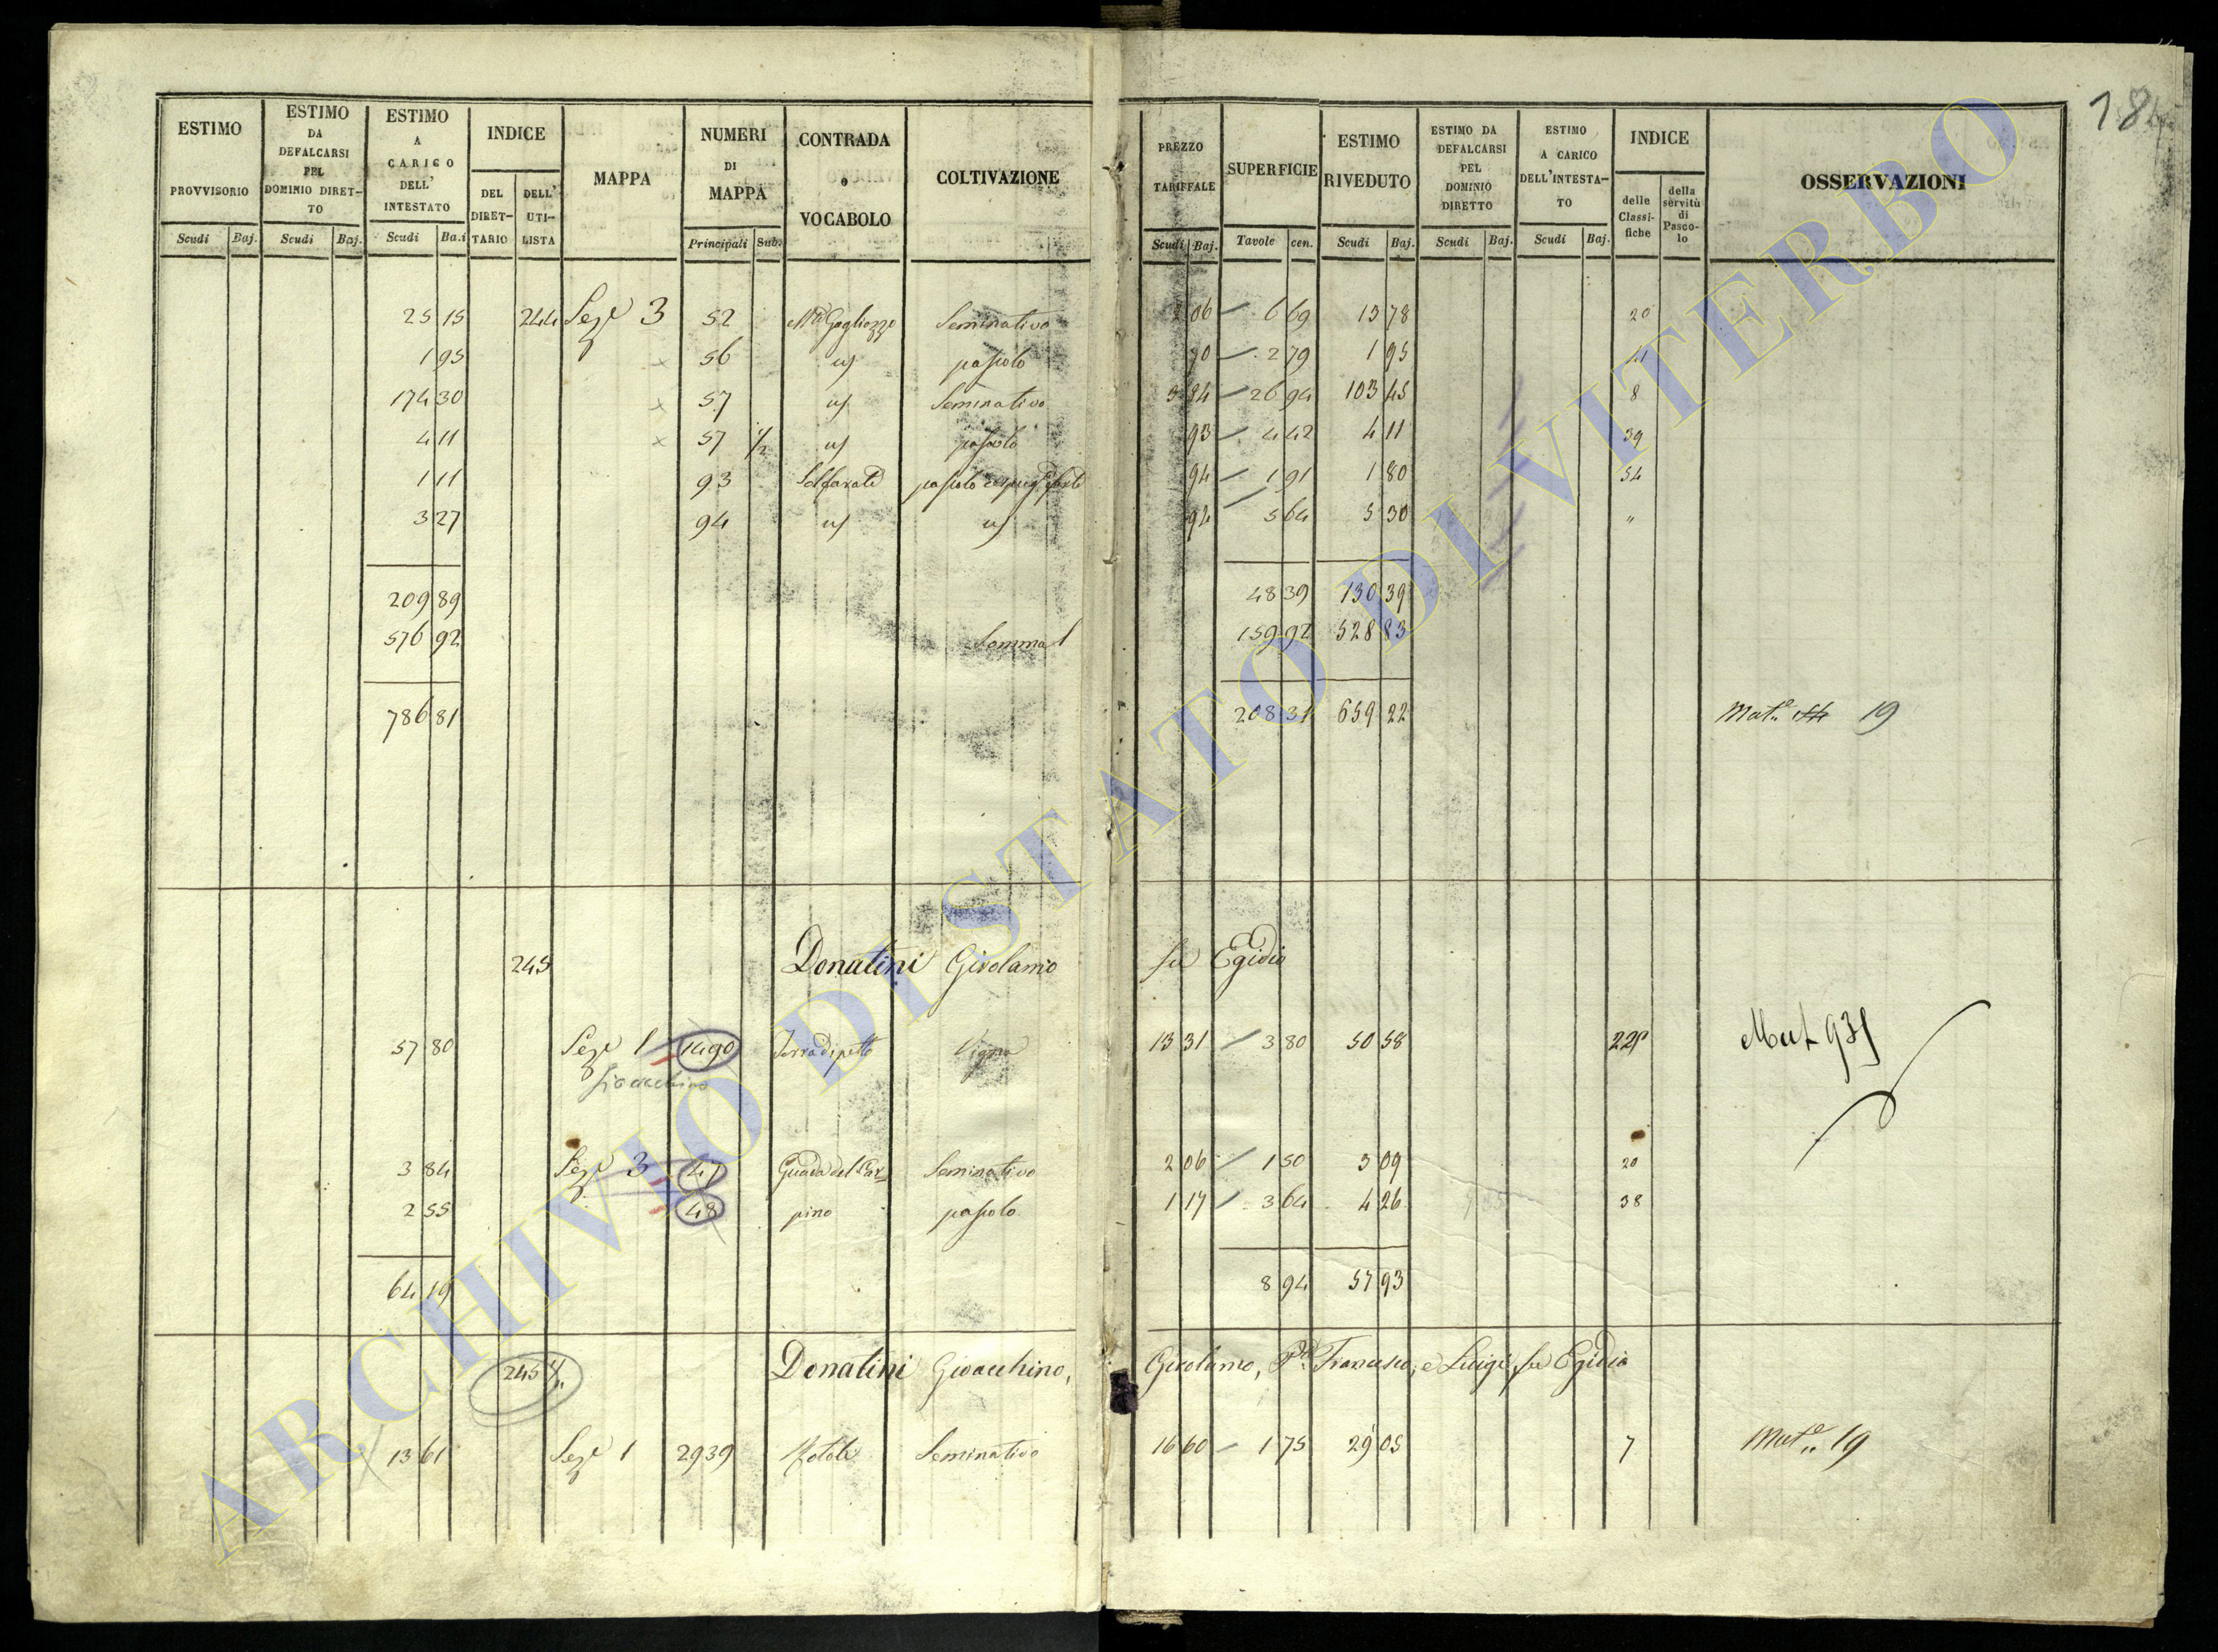 184
ESTIMO PROVVISORIO
ESTIMO DA DEFALCARSI PEL DOMINIO DIRETTO
ESTIMO A CARICO DELL' INTESTATO
INDICE
DEL DIRETTARIO
DELL' UTILISTA
MAPPA
NUMERI DI MAPPA
CONTRADA o VOCABOLO
COLTIVAZIONE
PREZZO TARIFFALE
SUPERFICIE
ESTIMO RIVEDUTO
ESTIMO DA DEFALCARSI PEL DOMINIO DIRETTO
ESTIMO A CARICO DELL'INTESTATO
INDICE
delle Classifiche
della servitù di Pascolo
OSSERVAZIONI
Scudi Baj. Scudi Baj. Scudi Ba.i Principali Sub. Scudi Baj. Tavole cen. Scudi Baj. Scudi Baj. Scudi Baj.
25 15 244 Seze 3 52 Seminativo 2 06 6 69 13 78 20
1 95 56 us pascolo 70 2 79 1 95
174 30 57 us Seminativo 3 84 26 94 103 45 8
4 11 57 1/2 us pascolo 93 4 42 4 11 39
1 11 93 Solfarate pascolo 94 1 91 1 80 54
3 27 94 us us 94 5 64 5 30 "
209 89 48 39 130 39
576 92 Somma 159 92 528 83
786 81 208 31 659 22 Mat.e 19
245 Donatini Girolamo fu Egidio
57 80 Seze 1 1490 Terradipetto Vigna 13 31 3 80 50 58 Mut 935
Gioacchino
3 84 Seze 3 47 Guado del Car= Seminativo 2 06 1 50 3 09 20
2 55 48 pino pascolo 1 17 3 64 4 26 38
64 19 8 94 57 93
245 1/2 Donatini Gioacchino, Girolamo, Francesco, e Luigi fu Egidio
13 61 Seze 1 2939 Seminativo 16 60 1 75 29 05 7 Mat.e 19
ARCHIVIO DI STATO DI VITERBO